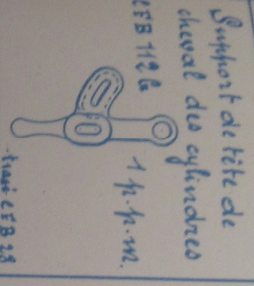 Support de tête de
cheval des cylindres
CFB 112 b
1 p.p.m.
CFB 28